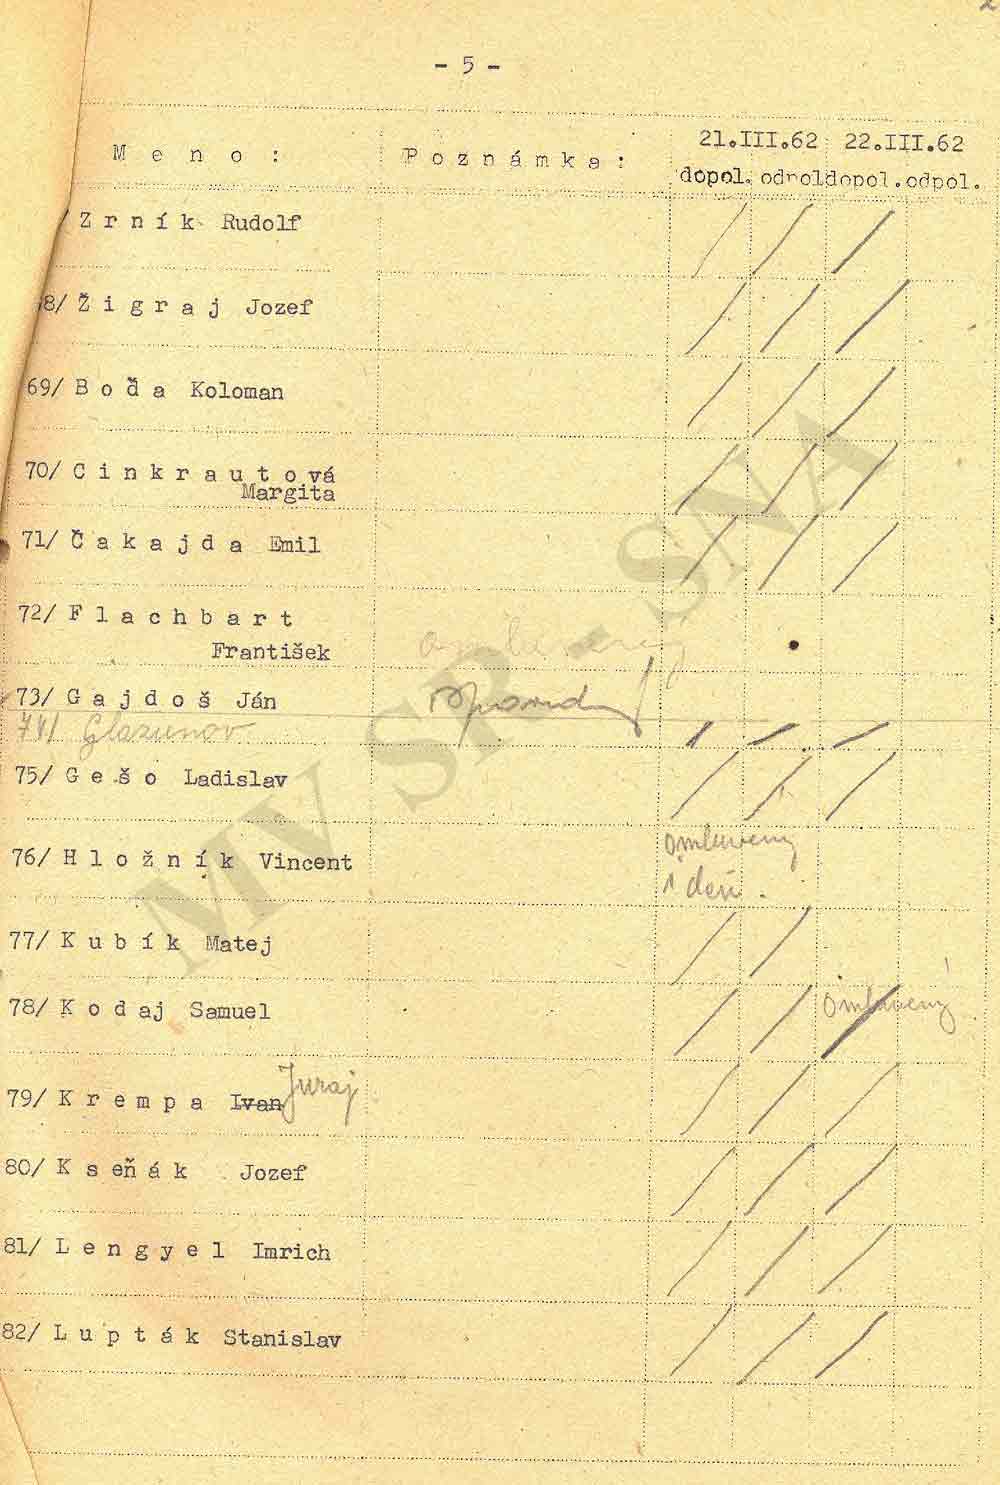 - 5 -
M e n o :
P o z n á m k a :
21.III.62 22.III.62
dopol. odpoldopol. odpol.
Z r n í k Rudolf
8/ Ž i g r a j Jozef
69/ B o ď a Koloman
70/ C i n k r a u t o v á
Margita
71/ Č a k a j d a Emil
72/ F l a c h b a r t
František
omluvený
73/ G a j d o š Ján
74/ Glazunov
75/ G e š o Ladislav
76/ H l o ž n í k Vincent
omluvený
1 deň.
77/ K u b í k Matej
78/ K o d a j Samuel
omluvený
79/ K r e m p a Ivan Juraj
80/ K s e ň á k Jozef
81/ L e n g y e l Imrich
82/ L u p t á k Stanislav
MV SR - SNA